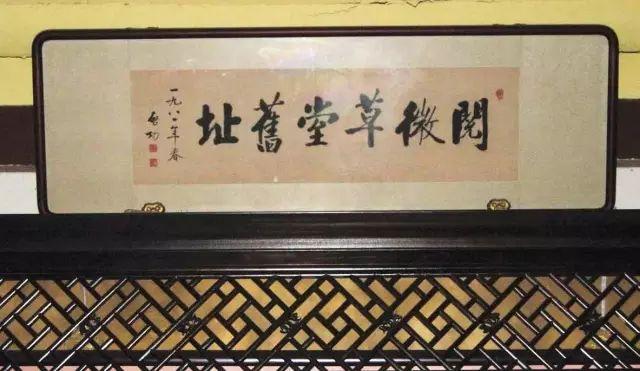 閱微草堂舊址
一九八一年春
启功